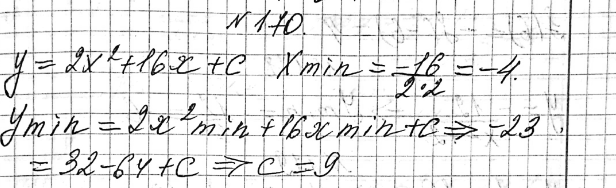 N 170.
y = 2x² + 16x + c   Xmin = -16/2·2 = -4.
Ymin = 2x²min + 16xmin + c ⇒ -23
= 32 - 64 + c ⇒ c = 9